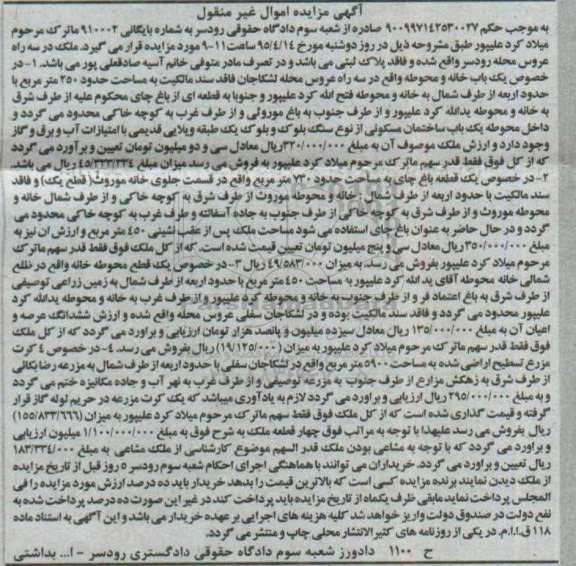 آگهی مزایده اموال غیر منقول
به موجب حکم ۹۰۰۹۹۷۱۴۲۵۳۰۰۲۷ صادره از شعبه سوم دادگاه حقوقی رودسر به شماره بایگانی ۹۱۰۰۰۲ ماترک مرحوم
میلاد کرد علیپور طبق مشروحه ذیل در روز دوشنبه مورخ ۹۵/۴/۱۴ ساعت ۱۱-۹ مورد مزایده قرار می گیرد. ملک در سه راه
عروس محله رودسر واقع شده و فاقد پلاک ثبتی می باشد و در تصرف مادر متوفی خانم آسیه صادقعلی پور می باشد. ۱- در
خصوص یک باب خانه و محوطه واقع در سه راه عروس محله لشکاجان فاقد سند مالکیت به مساحت حدود ۲۵۰ متر مربع با
حدود اربعه از طرف شمال به خانه و محوطه فتح الله کرد علیپور و جنوبا به قطعه ای از باغ چای محکوم علیه از طرف شرق
به خانه و محوطه یدالله کرد علیپور و از طرف جنوب به باغ موروثی و از طرف غرب به کوچه خاکی محدود می گردد و
داخل محوطه یک باب ساختمان مسکونی از نوع سنگ بلوک و بلوک یک طبقه ویلایی قدیمی با امتیازات آب و برق و گاز
وجود دارد و ارزش ملک موصوف آن به مبلغ ۳۲۰/۰۰۰/۰۰۰ ریال معادل سی و دو میلیون تومان تعیین و برآورد می گردد
که از کل فوق فقط قدر سهم ماترک مرحوم میلاد کرد علیپور به فروش می رسد میزان مبلغ ۴۵/۳۳۳/۳۳۴ ریال می باشد.
۲- در خصوص یک قطعه باغ چای به مساحت حدود ۷۳۰ متر مربع واقع در قسمت جلوی خانه موروث (قطع یک) و فاقد
سند مالکیت با حدود اربعه از طرف شمال خانه و محوطه موروث از طرف شرق به کوچه خاکی و از طرف شمال خانه و
محوطه موروث و از طرف شرق به کوچه خاکی از طرف جنوب به جاده آسفالته و طرف غرب به کوچه خاکی محدود می
گردد و در حال حاضر به عنوان باغ چای استفاده می شود مساحت ملک پس از عقب نشینی ۴۵۰ متر مربع و ارزش آن نیز به
مبلغ ۳۵۰/۰۰۰/۰۰۰ ریال معادل سی و پنج میلیون تومان تعیین قیمت شده است. که از کل ملک فوق فقط قدر سهم ماترک
مرحوم میلاد کرد علیپور بفروش می رسد. به میزان ۴۹/۵۸۳/۰۰۰ ریال ۳- در خصوص یک قطع محوطه خانه واقع در ضلع
شمالی خانه محوطه آقای ید الله کرد علیپور به مساحت ۴۵۰ متر مربع با حدود اربعه از طرف شمال به زمین زراعی توصیفی
از طرف شرق به باغ اعتماد فر و از طرف جنوب به خانه و محوطه کرد علیپور و از طرف غرب به خانه و محوطه یدالله کرد
علیپور محدود می گردد و فاقد سند مالکیت بوده و در لشکاجان سفلی عروس محله واقع شده و ارزش ششدانگ عرصه و
اعیان آن به مبلغ ۱۳۵/۰۰۰/۰۰۰ ریال معادل سیزده میلیون و پانصد هزار تومان ارزیابی و براورد می گردد که از کل ملک
فوق فقط قدر سهم ماترک مرحوم میلاد کرد علیپور به میزان (۱۹/۱۲۵/۰۰۰) ریال بفروش می رسد. ۴- در خصوص ۴ کرت
مزرع تسطیح اراضی شده به مساحت ۵۹۰۰ متر مربع واقع در لشکاجان سفلی با حدود اربعه از طرف شمال به مزرعه رضا بکانی
از طرف شرق به زهکش مزارع از طرف جنوب به مزرعه توصیفی و از طرف غرب به نهر آب و جاده مکانیزه ختم می گردد
و به مبلغ ۲۹۵/۰۰۰/۰۰۰ ریال ارزیابی و برآورد می گردد لازم به یادآوری میباشد که یک کرت مزرعه در حریم لوله گاز قرار
گرفته و قیمت گذاری شده است که از کل ملک فوق فقط سهم ماترک مرحوم میلاد کرد علیپور به میزان (۱۵۵/۸۳۳/۶۶۶)
ریال بفروش می رسد علیهذا با توجه به مراتب فوق چهار قطعه ملک به شرح فوق به مبلغ ۱/۱۰۰/۰۰۰/۰۰۰ میلیون ارزیابی
و براورد می گردد که با توجه به مشاعی بودن ملک قدر السهم موضوع کارشناسی از ملک مشاعی به مبلغ ۱۸۳/۳۳۴/۰۰۰
ریال تعیین و برآورد می گردد. خریداران می توانند با هماهنگی اجرای احکام شعبه سوم رودسر ۵ روز قبل از تاریخ مزایده
از ملک دیدن نمایند برنده مزایده کسی است که بالاترین قیمت را بدهد خریدار باید ده درصد ارزش مورد مزایده را فی
المجلس پرداخت نماید مابقی ظرف یکماه از تاریخ مزایده باید پرداخت کند در غیر این صورت ده درصد پرداخت شده به
نفع دولت در صندوق دولت واریز خواهد شد کلیه هزینه های اجرایی بر عهده خریدار می باشد و این آگهی به استناد ماده
۱۱۸ ق.ا.ا.م. در یکی از روزنامه های کثیر الانتشار محلی چاپ و منتشر می گردد.
ح ۱۱۰۰ دادورز شعبه سوم دادگاه حقوقی دادگستری رودسر - ا... بداشتی